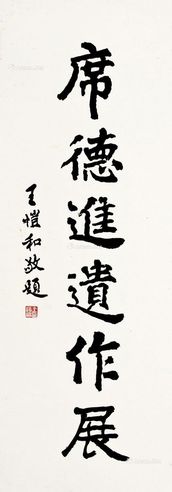 席德進遺作展
王愷和敬題